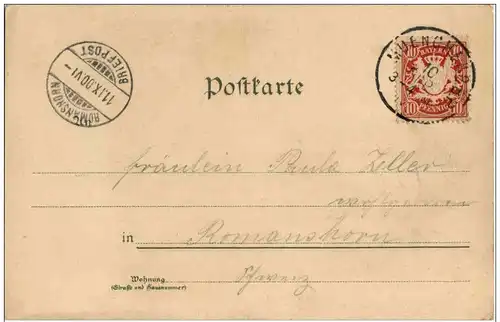 BRIEFPOST
11.IX.00.VI
ROMANSHORN
MUENCHEN
BAYERN
10 10
PFENNIG
Postkarte
Fräulein Paula Zeller
in Romanshorn
Wohnung Schweiz
(Straße und Hausnummer)